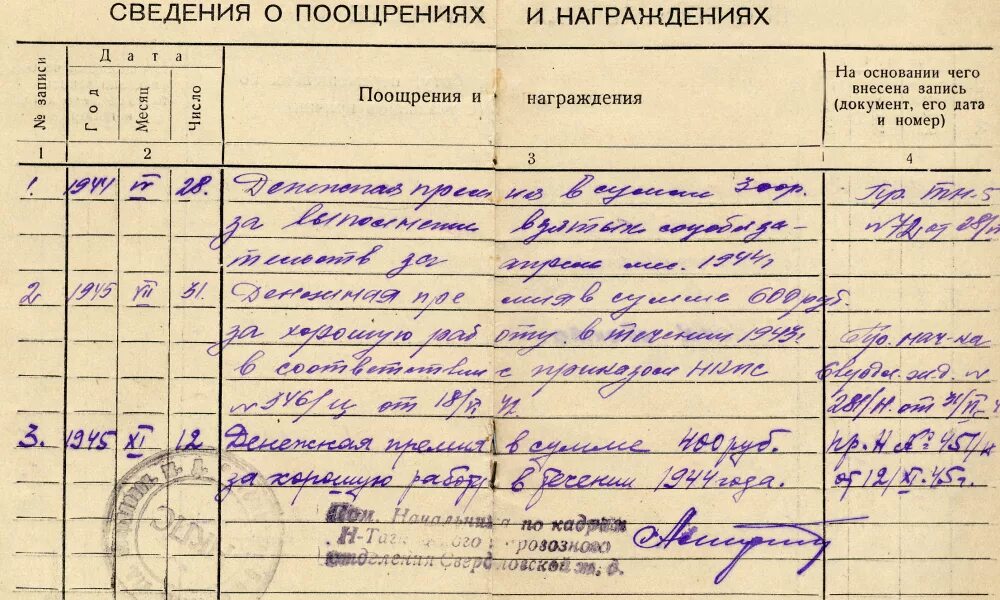 СВЕДЕНИЯ О ПООЩРЕНИЯХ И НАГРАЖДЕНИЯХ
№ записи
Дата
Год
Месяц
Число
Поощрения и награждения
На основании чего
внесена запись
(документ, его дата
и номер)
1 2 3 4
1. 1944 IV 28. Денежная премия в сумме 300р. Пр. ТН-5
за выполнение взятых соцобяза- №72 от 28/IV
тельств за апрель мес. 1944г
2 1945 VII 31. Денежная премия в сумме 600 руб.
за хорошую работу в течении 1943г. Пр. нач-ка
в соответствии с приказом НКПС Свердл. ж.д. №
№ 546/Ц от 18/VI 42. 281/Н. от 31/VII
3. 1945 XI 12 Денежная премия в сумме 400 руб. пр. Н № 451/н
за хорошую работу в течении 1944 года. от 12/XI-45г.
Пом. Начальника по кадрам
Н-Таг ого
отделения Свердловской ж. д.